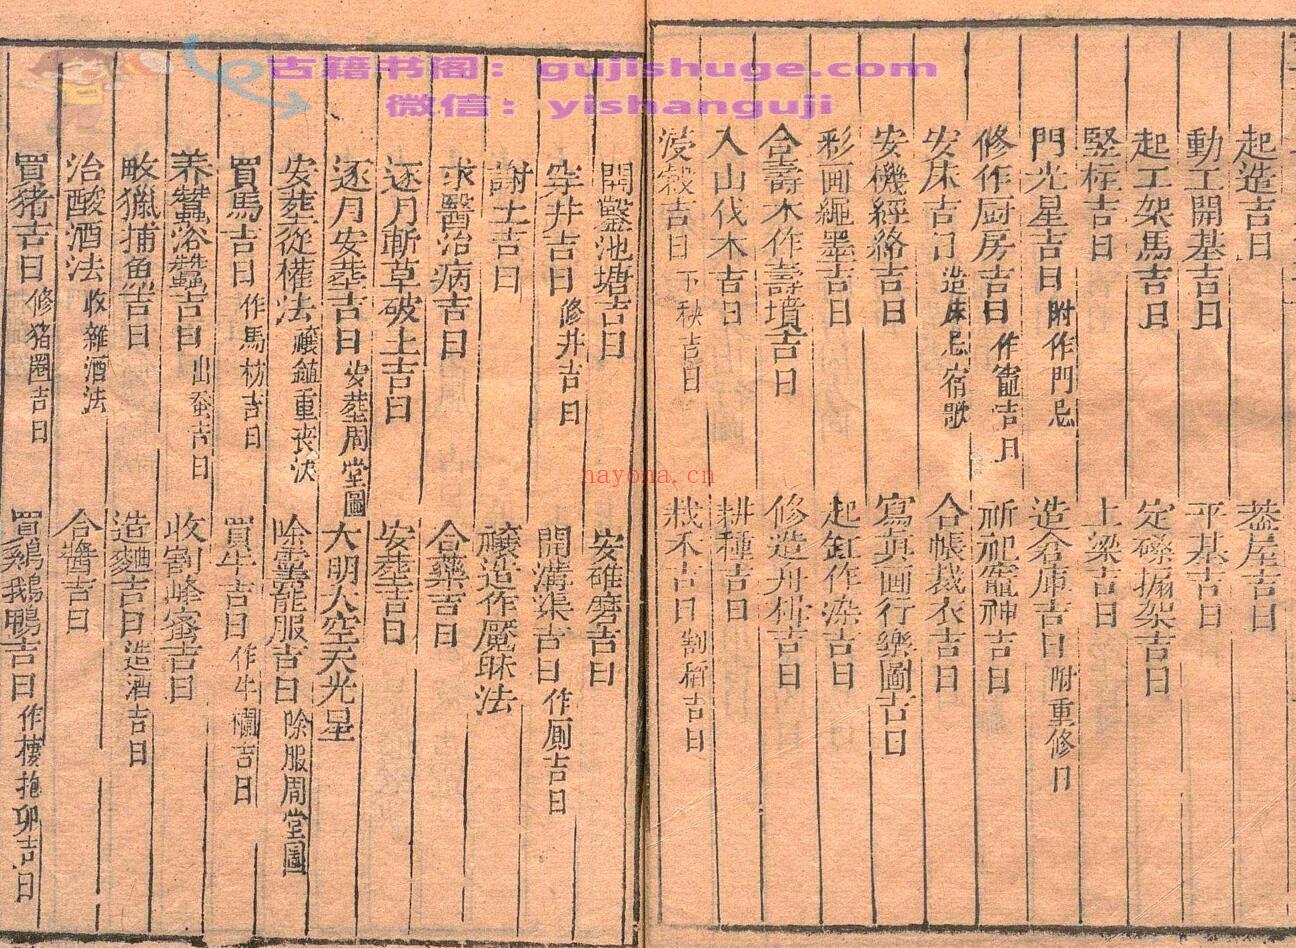 古籍书阁：gujishuge.com
微信：yishanguji
hayona.cn
起造吉日 蓋屋吉日
動工開基吉日 平基吉日
起工架馬吉日 定磉搧架吉日
竪柱吉日 上梁吉日
門光星吉日 附作門忌 造倉庫吉日 附重修日
修作厨房吉日 作竈吉日 祈祀竈神吉日
安床吉日 造床忌宿歌 合帳裁衣吉日
安機經絡吉日 寫真画行樂圖吉日
彩画繩墨吉日 起缸作染吉日
合壽木作壽墳吉日 修造舟楫吉日
入山伐木吉日 耕種吉日
浸穀吉日 下秧吉日 栽禾吉日 割稻吉日
開鑿池塘吉日 安碓磨吉日
穿井吉日 修井吉日 開溝渠吉日 作厠吉日
謝土吉日 禳造作魘昧法
求醫治病吉日 合藥吉日
逐月斬草破土吉日 安葬吉日
逐月安葬吉日 安葬周堂圖 大明大空天光星
安葬從權法 禳鎮重丧决 除靈罷服吉日 除服周堂圖
買馬吉日 作馬枋吉日 買牛吉日 作牛欄吉日
养蠶浴蠶吉日 出蚕吉日 收割蜂蜜吉日
畋獵捕魚吉日 造麯吉日 造酒吉日
治酸酒法 收雜酒法 合醬吉日
買猪吉日 修猪圈吉日 買鷄鵝鴨吉日 作棲抱卵吉日